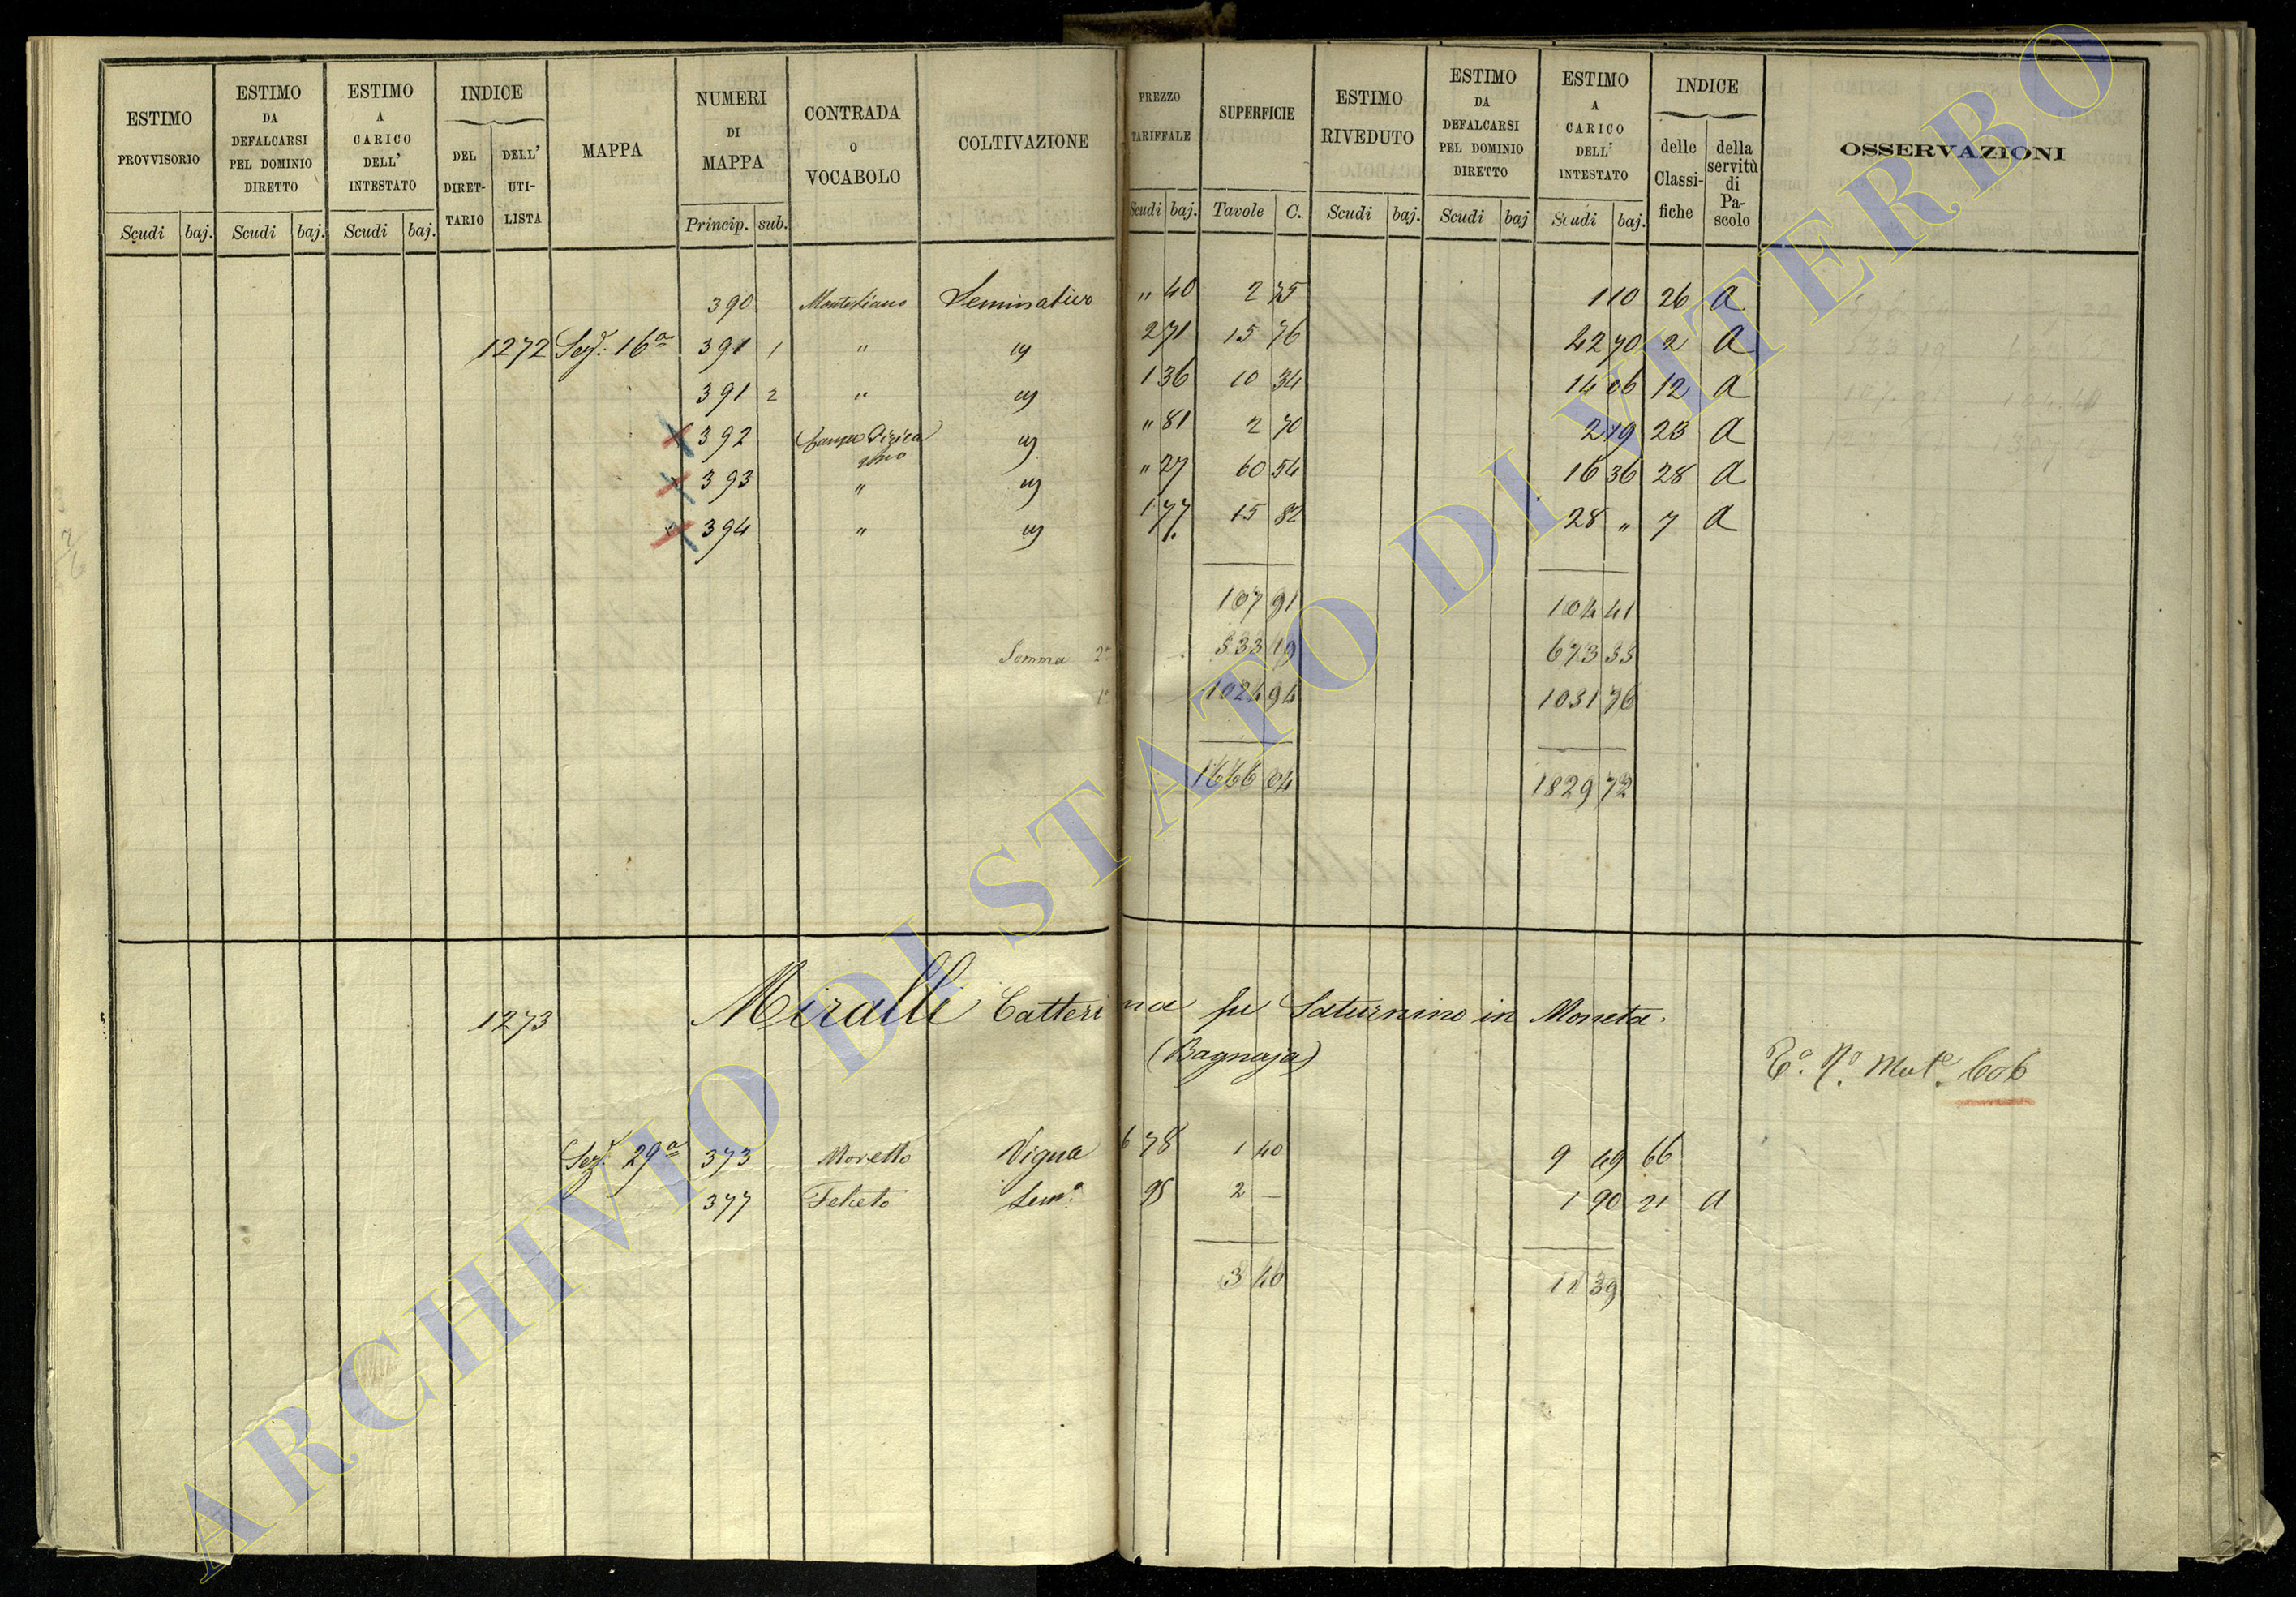 ESTIMO PROVVISORIO Scudi baj.
ESTIMO DA DEFALCARSI PEL DOMINIO DIRETTO Scudi baj.
ESTIMO A CARICO DELL' INTESTATO Scudi baj.
INDICE DEL DIRET-TARIO DELL' UTI-LISTA
MAPPA
NUMERI DI MAPPA Princip. sub.
CONTRADA O VOCABOLO
COLTIVAZIONE
PREZZO TARIFFALE Scudi baj.
SUPERFICIE Tavole C.
ESTIMO RIVEDUTO Scudi baj.
ESTIMO DA DEFALCARSI PEL DOMINIO DIRETTO Scudi baj
ESTIMO A CARICO DELL' INTESTATO Scudi baj.
INDICE delle Classi-fiche della servitù di Pa-scolo
OSSERVAZIONI
390 Seminativo " 40 2 75 1 10 26 A
1272 Sez. 16a 391 1 " " 2 71 15 76 42 70 2 A
391 2 " " 1 36 10 34 14 06 12 A
392 " " 81 2 70 2 19 23 A
393 " " " 27 60 54 16 36 28 A
394 " " 1 77 15 82 28 " 7 A
107 91 104 41
Somma 2a 533 19 673 55
1a 1024 94 1031 76
1666 04 1829 72
1273 Miralli Catterina fu Saturnino in Moneta.
(Bagnaja)
606
Sez. 29a 373 Moretto Vigna 6 78 1 40 9 49 66
377 Felceto Sem.o 95 2 — 1 90 21 A
3 40 11 39
ARCHIVIO DI STATO DI VITERBO